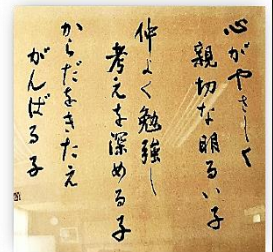 心がやさしく
親切な明るい子
仲よく勉強し
考えを深める子
からだをきたえ
がんばる子